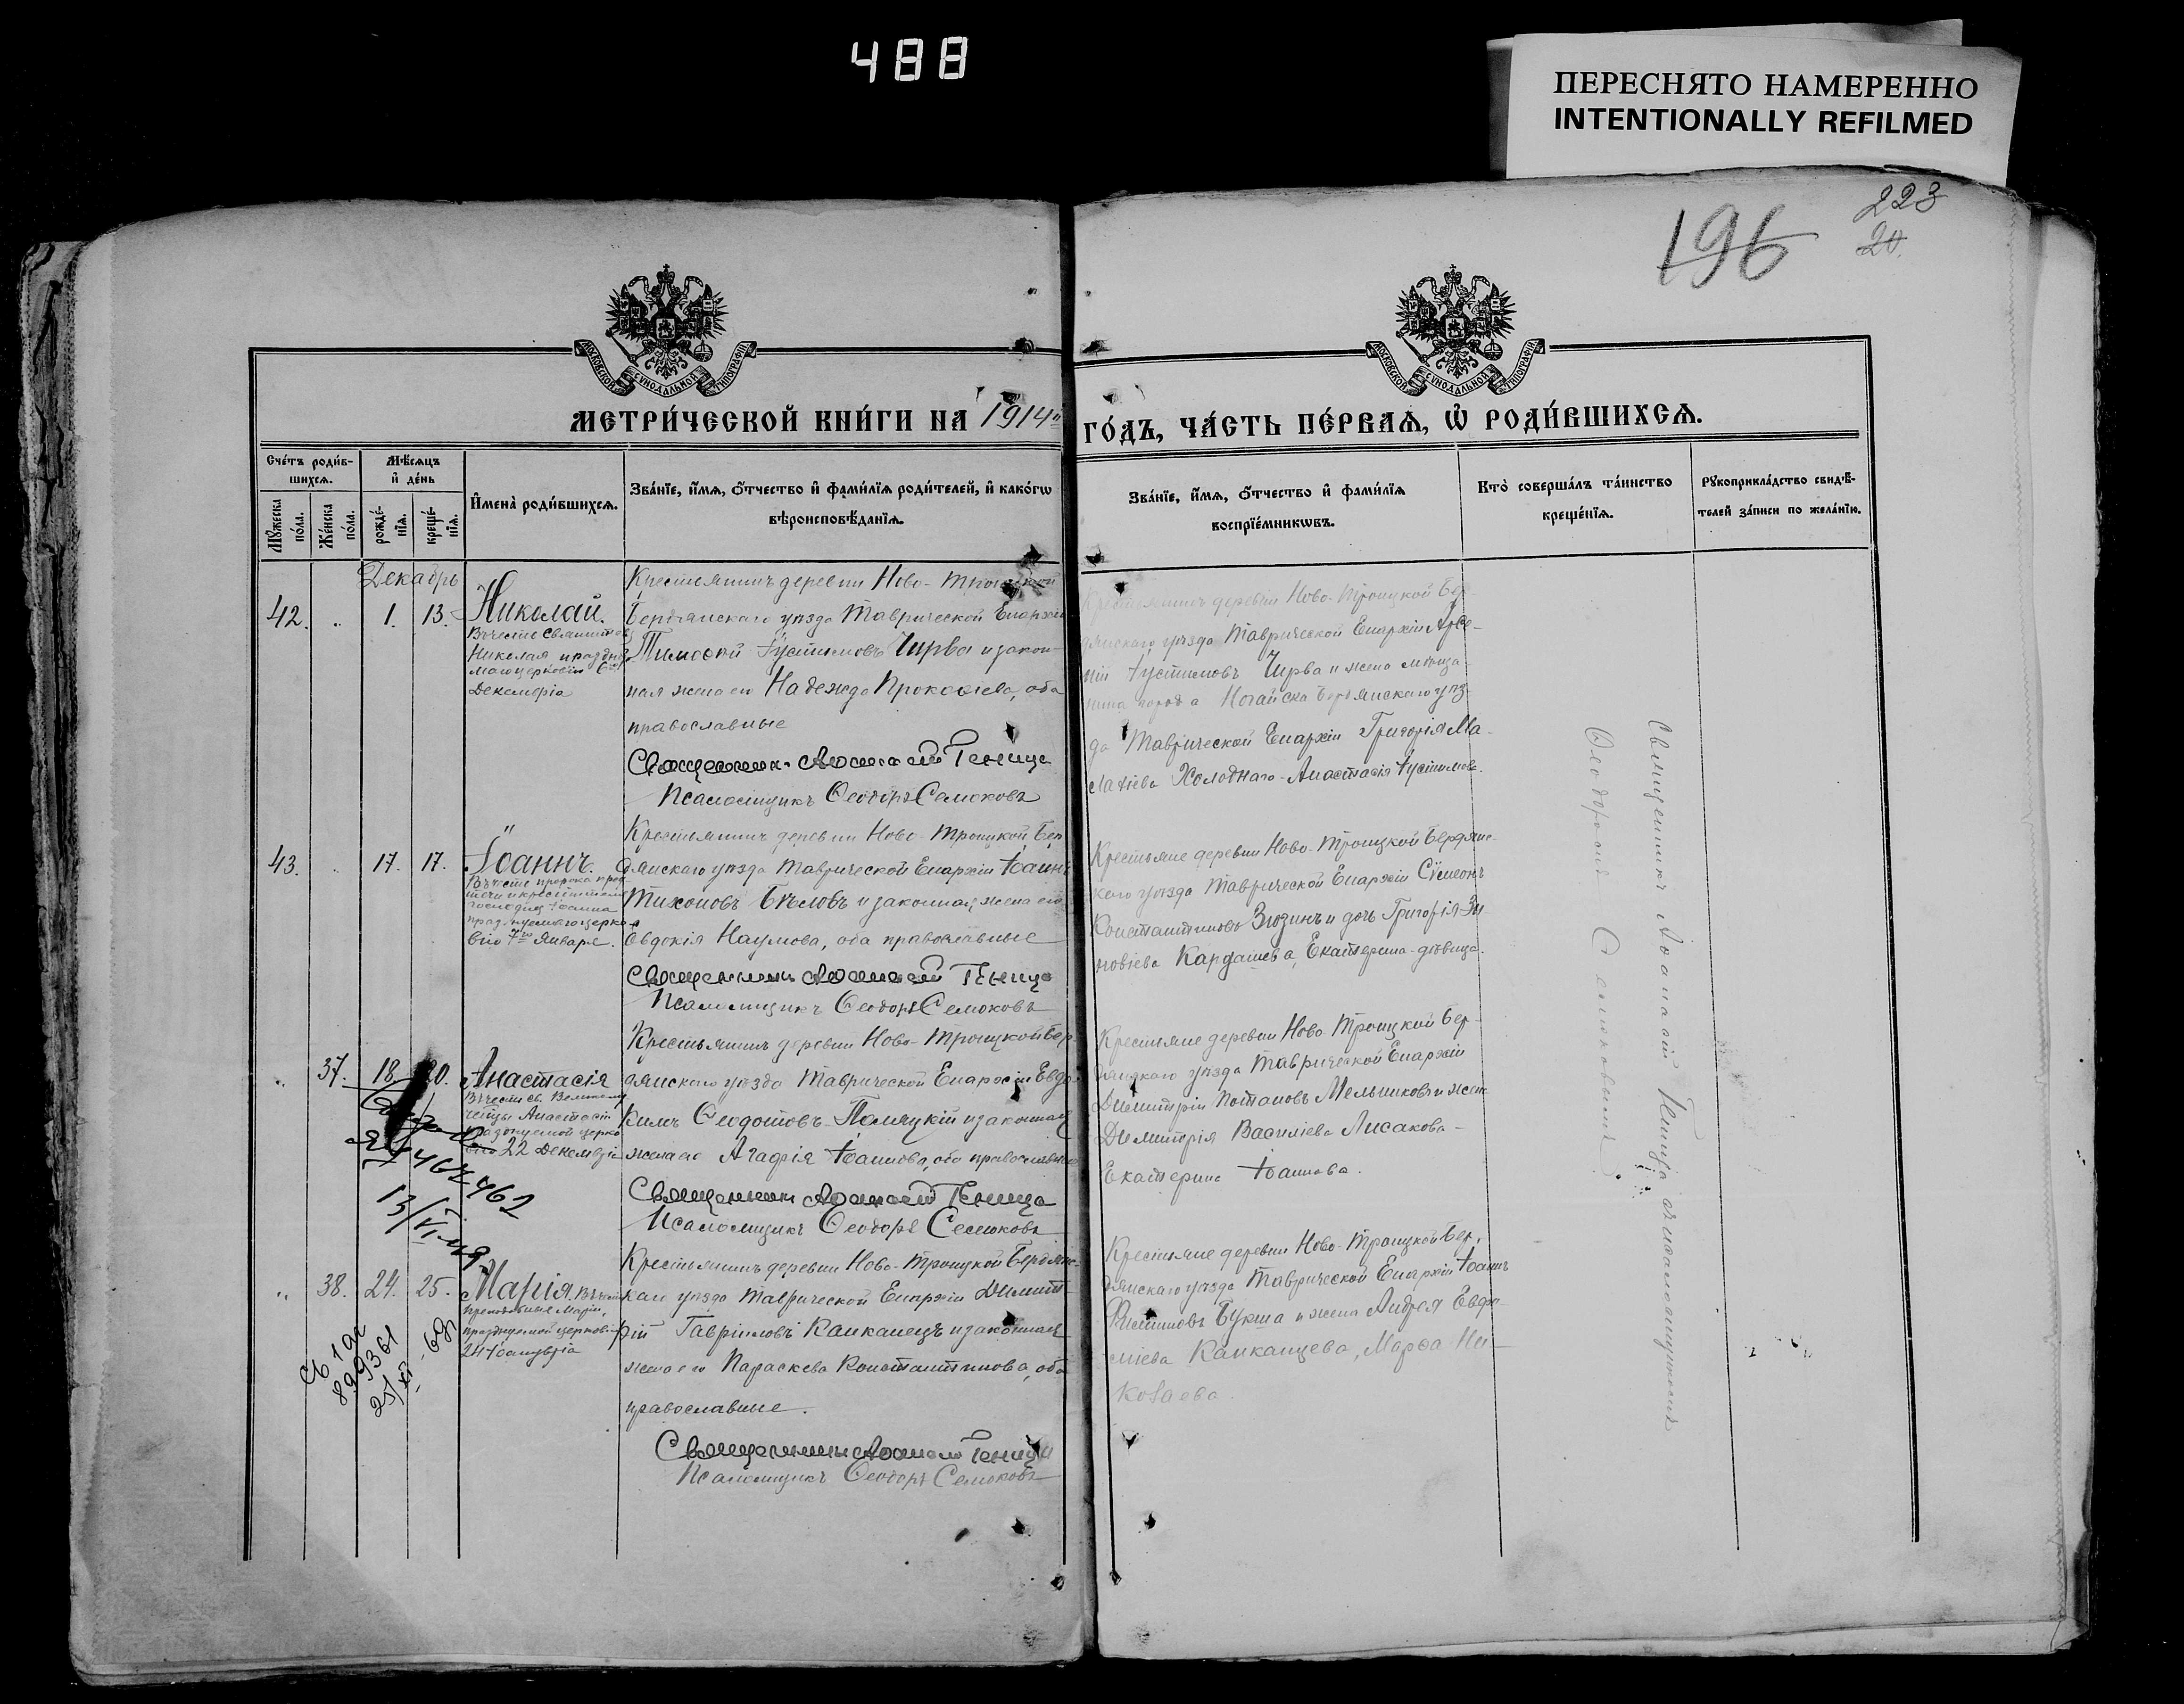 488
ПЕРЕСНЯТО НАМЕРЕННО
INTENTIONALLY REFILMED
223
20.
196
МОСКОВСКОЙ СѴНОДАЛЬНОЙ ТИПОГРАФІИ
МОСКОВСКОЙ СѴНОДАЛЬНОЙ ТИПОГРАФІИ
МЕТРИ́ЧЕСКОЙ КНИ́ГИ НА 1914й
ГО́ДЪ, ЧА́СТЬ ПЕ́РВАѦ, Ѡ РОДИ́ВШИХСѦ.
Сче́тъ роди́в-
шихсѧ.
Мѣ́сѧцъ
и҆ де́нь
Мꙋ́жеска
по́ла.
Же́нска
по́ла.
рожде́-
нїѧ.
креще́-
нїѧ.
И҆мена̀ роди́вшихсѧ.
Зва́нїе, и҆́мѧ, ѻ҆́тчество и҆ фами́лїѧ роди́телей, и҆ како́гѡ
вѣроисповѣ́данїѧ.
Зва́нїе, и҆́мѧ, ѻ҆́тчество и҆ фами́лїѧ
воспрїе́мникѡвъ.
Кто̀ соверша́лъ та́инство
креще́нїѧ.
Рꙋкоприкла́дство свидѣ́-
телей за́писи по жела́нїю.
Декабрь
42. " 1. 13. Николай.
Въ честь Святителя
Николая праздну
церковію 6го
Декемврія
Крестьянинъ деревни Ново-Троицкой
Бердянскаго уѣзда Таврической Епархіи
Тимоѳей Іустиновъ Чирва и закон-
ная жена его Надежда Прокофіева, оба
православные
Священникъ Аѳанасій Геница
Псаломщикъ Ѳеодоръ Семюковъ
Крестьянинъ деревни Ново-Троицкой Бер-
дянскаго уѣзда Таврической Епархіи Арсе-
ній Іустиновъ Чирва и жена мѣща-
нина города Ногайска Бердянскаго уѣз-
да Таврической Епархіи Григорія Ма-
Холоднаго-Анастасія Іустинова.
43. " 17. 17. Іоаннъ.
Въ честь пророка пред
течи и крестителя
Господня Іоанна
празднуемаго церко-
вію 7го Января.
Крестьянинъ деревни Ново-Троицкой Бер
дянскаго уѣзда Таврической Епархіи Іоаннъ
Тихоновъ Бѣловъ и законная жена его
Евдокія Наумова, оба православные
Священникъ Аѳанасій Геница
Псаломщикъ Ѳеодоръ Семюковъ
Крестьяне деревни Ново-Троицкой Бердянс-
каго уѣзда Таврической Епархіи Сѵмеонъ
Константиновъ Вюзинъ и дочь Григорія Зи-
новіева Кардашева, Екатерина-дѣвица.
" 37. 18. 20. Анастасія
Въ честь св. Великому
ченицы Анастасіи
празднуемой церко
вію 22 Декемврія
Крестьянинъ деревни Ново-Троицкой Бер
дянскаго уѣзда Таврической Епархіи Евдо-
кимъ Ѳеодотовъ и законная
жена его Агафія Іоаннова, оба православные
Священникъ Аѳанасій Геница
Псаломщикъ Ѳеодоръ Семюковъ
Крестьяне деревни Ново-Троицкой Бер-
дянскаго уѣзда Таврической Епархіи
Димитрій Потаповъ Мельниковъ и жена
Димитрія Василіева Лисакова-
Екатерина Іоаннова.
467462
13/VI
" 38. 24. 25. Марія. Въ честь
преподобныя Маріи,
празднуемой церковію
24 Іануврія
Крестьянинъ деревни Ново-Троицкой Бердянс-
каго уѣзда Таврической Епархіи Димит-
рій Гавріиловъ Капканецъ и законная
жена его Параскева Константинова, оба
православные.
Священникъ Аѳанасій Геница
Псаломщикъ Ѳеодоръ Семюковъ
Крестьяне деревни Ново-Троицкой Бер-
дянскаго уѣзда Таврической Епархіи Іоаннъ
Филиповъ Букша и жена Андрея Евфи-
міева Капканцева, Марѳа Ни-
колаева.
899361
25/XI - 69
Священникъ Аѳанасій Геница съ псаломщикомъ
Ѳеодоромъ Семюковымъ.